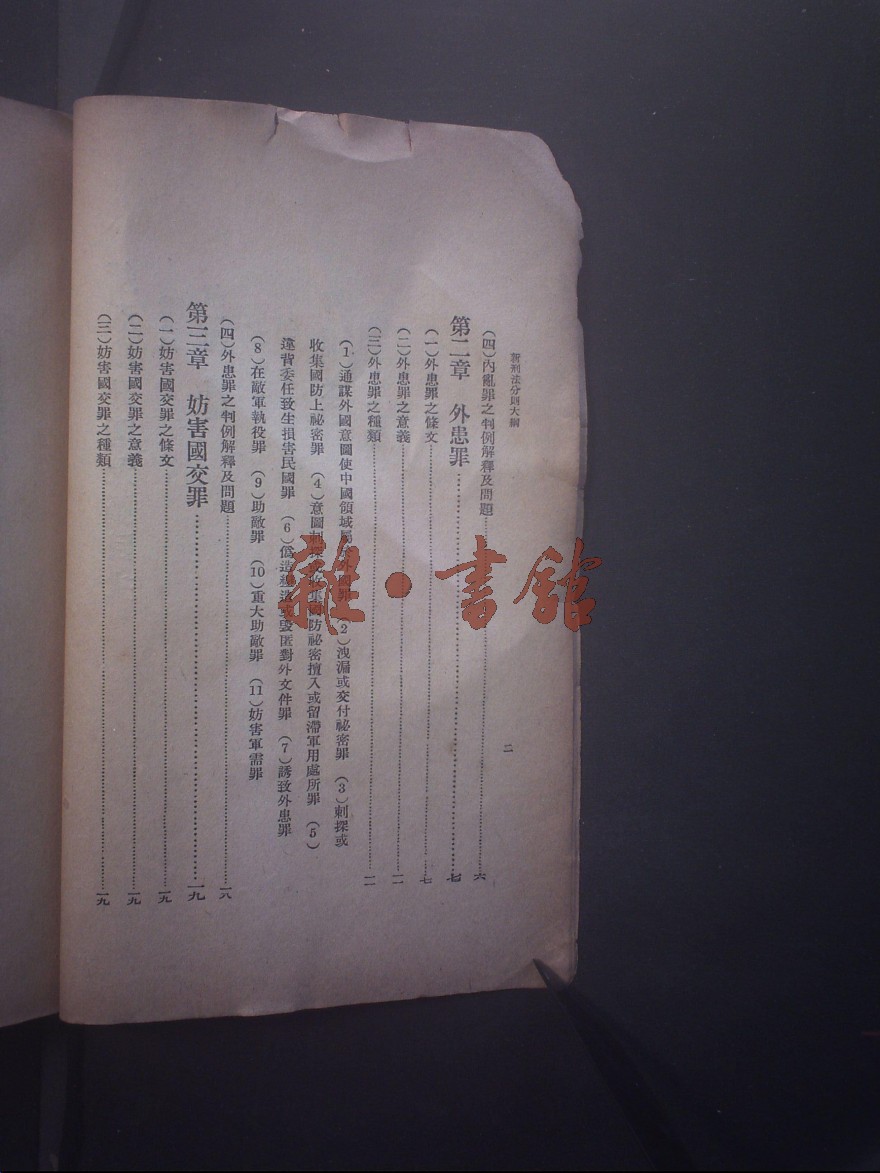 新刑法分則大綱
二
(四)內亂罪之判例解釋及問題……六
第二章 外患罪……七
(一)外患罪之條文……七
(二)外患罪之意義……一一
(三)外患罪之種類……一一
(1)通謀外國意圖使中國領域屬於外國罪 (2)洩漏或交付祕密罪 (3)刺探或
收集國防上祕密罪 (4)意圖刺探或收集國防祕密擅入或留滯軍用處所罪 (5)
違背委任致生損害民國罪 (6)偽造變造或毀匿對外文件罪 (7)誘致外患罪
(8)在敵軍執役罪 (9)助敵罪 (10)重大助敵罪 (11)妨害軍需罪
(四)外患罪之判例解釋及問題……一八
第三章 妨害國交罪……一九
(一)妨害國交罪之條文……一九
(二)妨害國交罪之意義……一九
(三)妨害國交罪之種類……一九
雜·書館